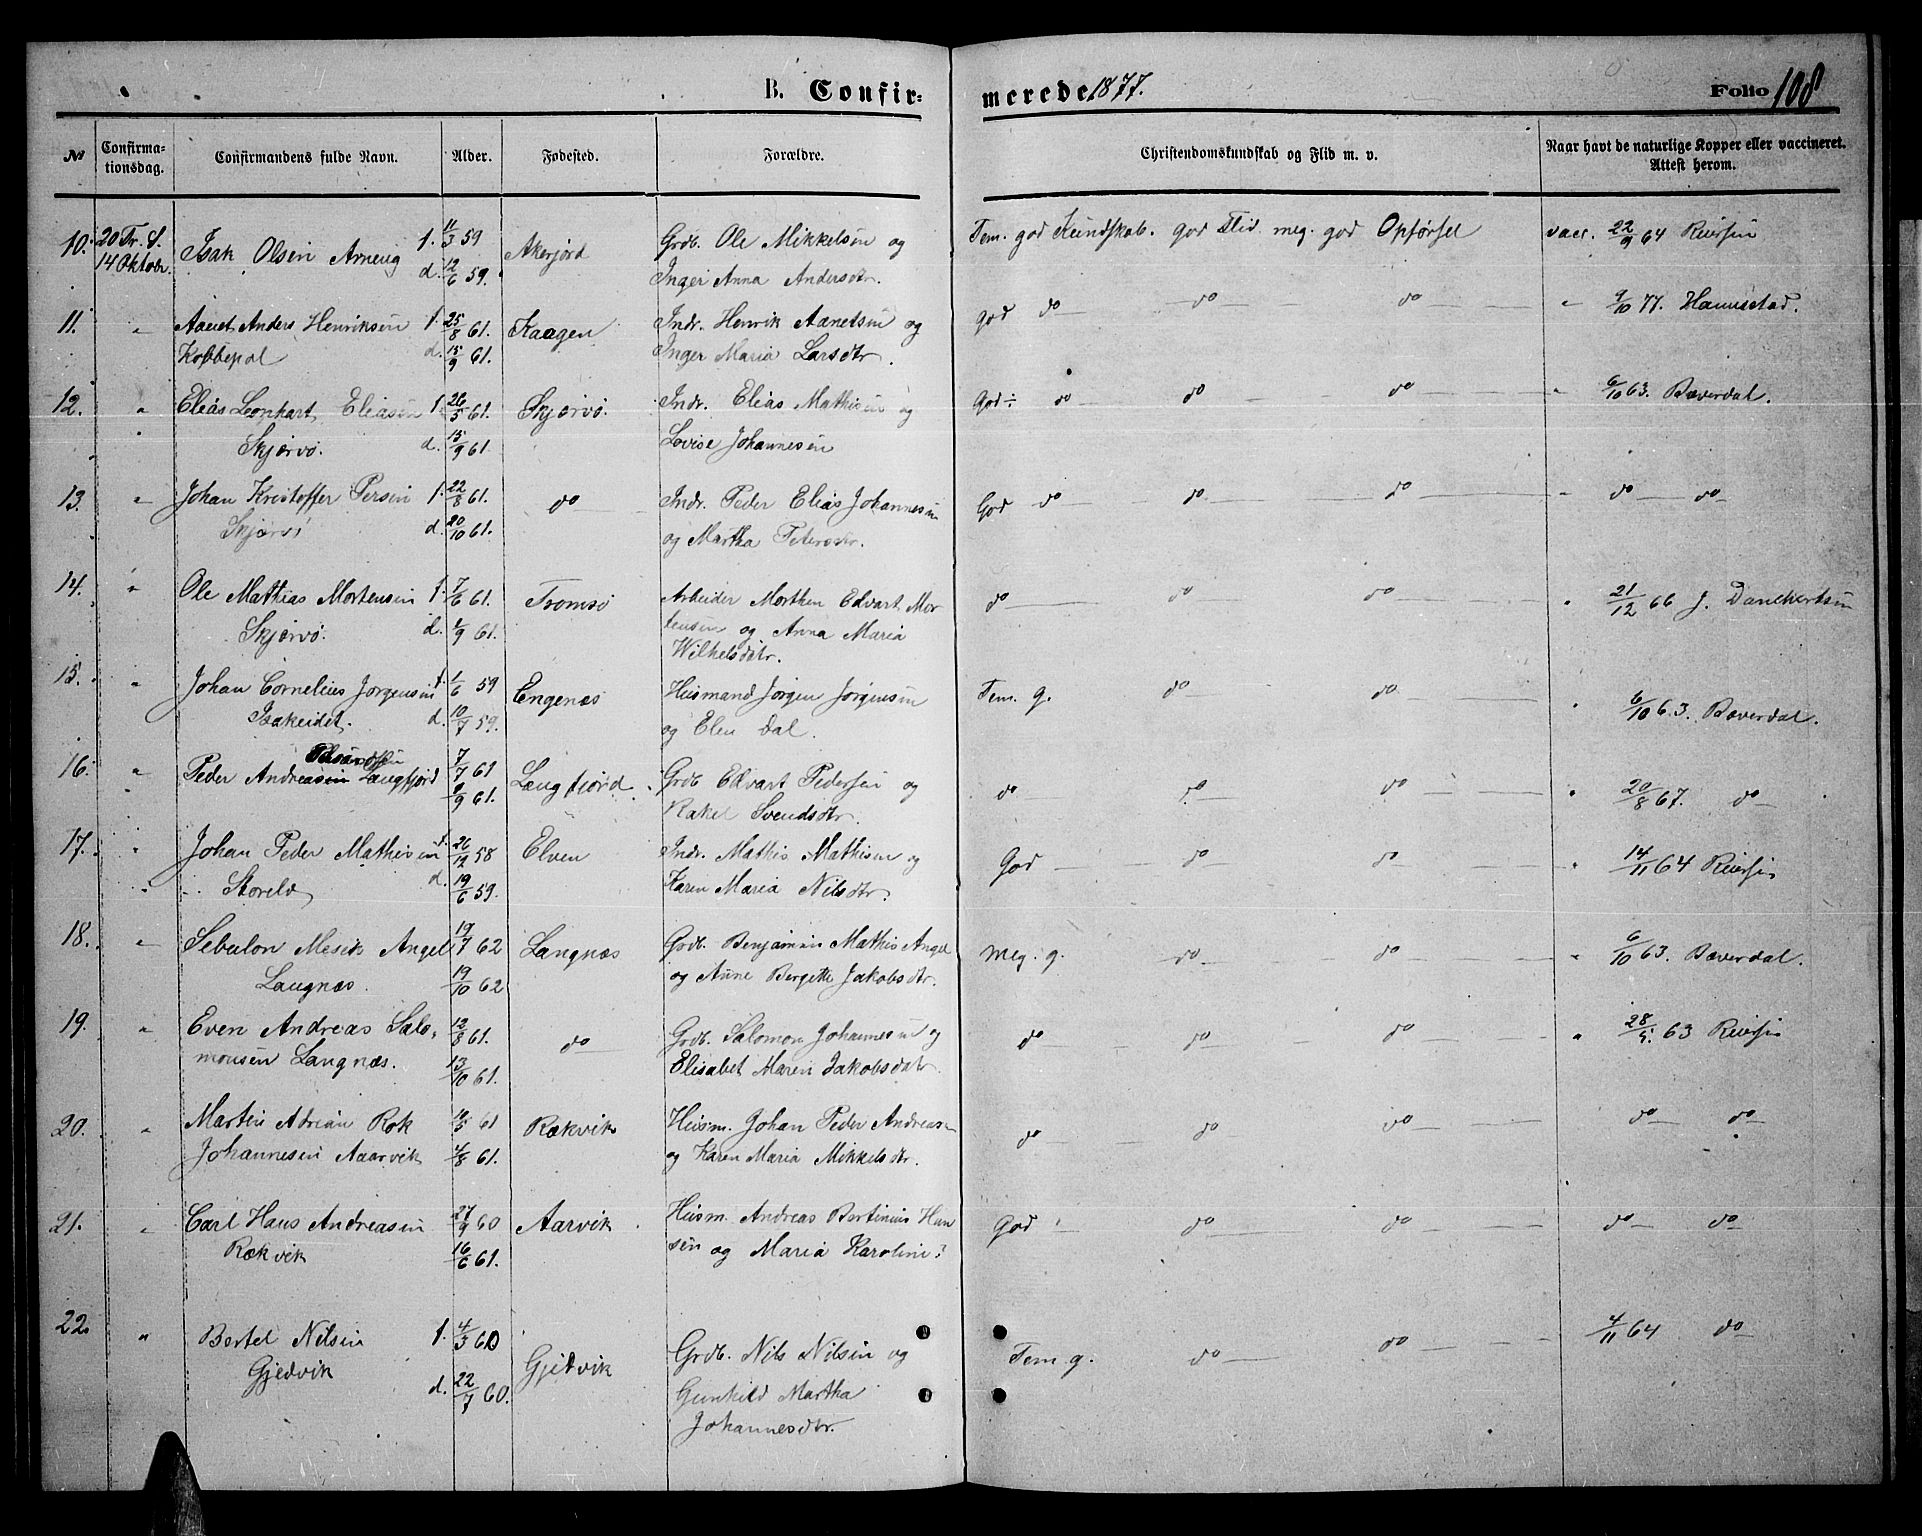 B. Confir=
merede 1877.
Folio 108
No Confirmationsdag. Confirmandens fulde Navn. Alder. Fødested. Forældre. Christendomskundskab og Flid m. v. Naar havt de naturlige Kopper eller vaccineret. Attest herom.
10. 20 Tr. S. Isak Olsen Arneng f. 11/3 59 Akerfjord Grdb. Ole Mikkelsen og Tem. god Kundskab. god Flid. meg. god Opførsel vacc. 22/9 64 Reiersen
14 Oktobr. d. 12/6 59. Inger Anna Andersdtr.
11. " Aanet Anders Henriksen f. 25/8 61. Kaagen Indr. Henrik Aanetsen og god do do do " 9/10 77. Hannestad.
Kobbepol d. 15/9 61. Inger Maria Larsdtr.
12. " Elias Leonhart Eliasen f. 26/5 61. Skjærvø. Indr. Elias Mathisen og God÷ do do do " 6/10 63. Bæverdal.
" Skjærvø. d. 15/9 61. Lovise Johannesen
13. " Johan Kristoffer Persen f. 22/8 61. do Indr. Peder Elias Johannesen God do do do " do do
Skjærvø d. 20/10 61. og Martha Petersdtr.
14. " Ole Mathias Mortensen f. 7/6 61. Tromsø Arbeider Morthen Edvart Mor do do do " 21/12 66 J. Danckertsen
Skjærvø. d. 1/9 61. tensen og Anna Maria
Wilhelsdtr.
15. " Johan Cornelius Jørgensen f. 1/6 59 Engenæs Husmand Jørgen Jørgensen Tem. g. do do " 6/10 63. Bæverdal.
Isakeidet. d. 10/7 59. og Elen Dal.
16. " Peder Andreasen Langfjord 7/7 61 Langfjord Grdb Edvart Pedersen og do do do " 20/8 67. do
9/9 61. Rakel Svendsdtr.
17. " Johan Peder Mathisen f. 26/12 58 Elven Indr. Mathis Mathisen og God do do " 14/11 64 Reiersen
" Storelv d. 19/6 59. Karen Maria Nilsdtr.
18. " Sebulon Mesik Angel 19/7 62 Langnæs Grdb. Benjamin Mathis Angel Meg. g. do do " 6/10 63. Bæverdal.
Langnæs. 19/10 62 og Anne Bergette Jakobsdtr.
19. " Even Andreas Salo- 12/8 61. do Grdb. Salomon Johannesen og do do do " 28/5 63 Reiersen
monsen Langnæs. 13/10 61. Elisabet Maren Jakobsdatr
20. " Martin Adrian Rok 10/5 61 Rækvik Husm. Johan Peder Andreasen do do do do do
Johannesen Aaarvik 4/8 61. og Karen Maria Mikkelsdtr.
21. " Carl Hans Andreasen 27/9 60 Aarvik Husm. Andreas Bertinius Han God do do do do
Rækvik 16/6 61. sen og Maria Karoline?
22. " Bertel Nilsen f. 4/3 60 Gjedvik Grdb. Nils Nilsen og Tem. g. do do 4/11 64 do
Gjedvik d. 22/7 60. Gunhild Martha
Johannesdtr.